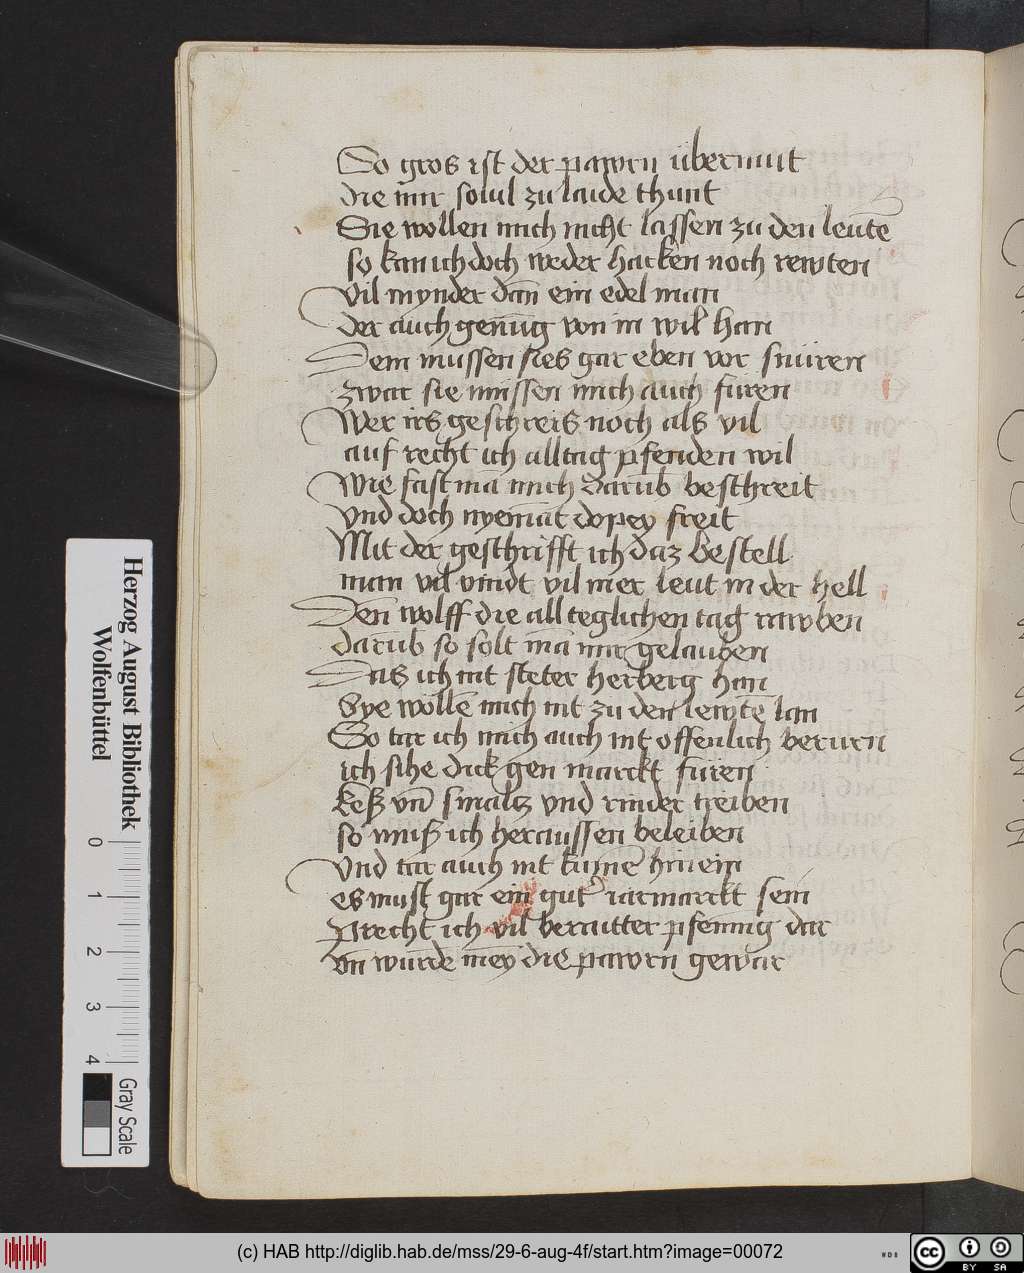 So gros ist der pawrn übermut
die mir souil zu laide thunt
Sie wollen mich nicht lassen zu den leutē
so kan ich doch weder hacken noch rewten
Vil mynder dañ ein edel man
der auch genūg von in wil han
Dem mussen sies gar eben vor snüren
zwar sie müssen mich auch furen
Wer irs geschreis noch als vil
auf recht ich alltag pfenden wil
Wie fast mā mich darūb beschreit
Vnd doch nyemāt dopey freit
Mit der geschrifft ich daz bestell
man vil vindt vil mer leut in der hell
Den̄ wolff die all teglichen tag rawben
darūb so solt mā mir gelauben
Das ich nit steter herberg han
Sye wöllē mich nit zu den lewtē lan
So tar ich mich auch nit offenlich berürn
ich sihe dick gen marckt füren
keß vn̄ smaltz vnd rinder treiben
so muß ich heraussen beleiben
Vnd tar auch nit kumē hinein
es must gar ein gut iarmarckt sein
Precht ich vil berautter pfennig dar
vn wurde mey die pawrn gewar
Herzog August Bibliothek
Wolfenbüttel
0 1 2 3 4
Gray Scale
(c) HAB http://diglib.hab.de/mss/29-6-aug-4f/start.htm?image=00072
WDB
cc BY SA